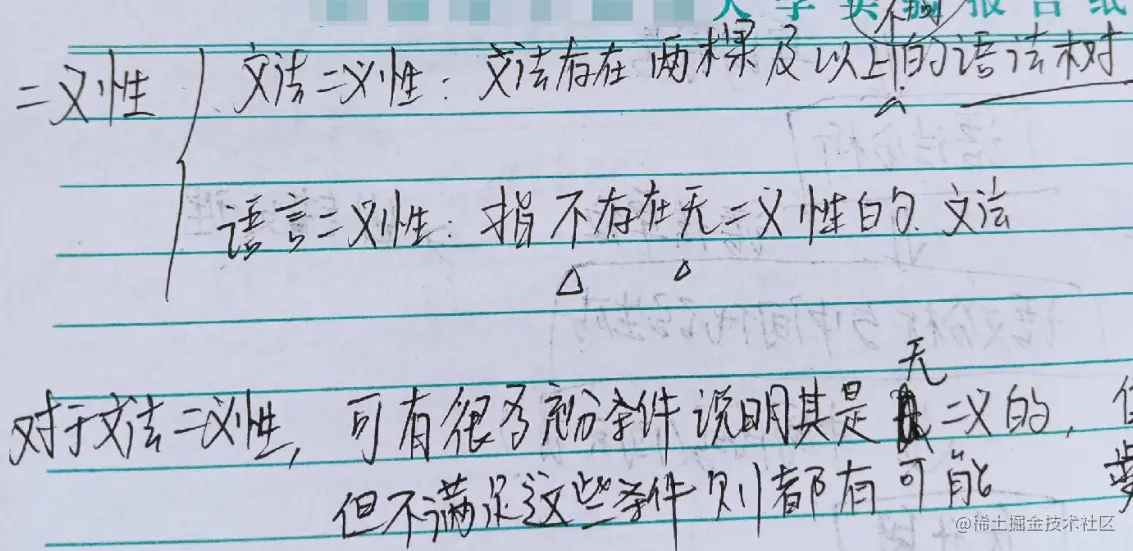 大学实验报告纸
不同
二义性
文法二义性：文法存在两棵及以上的语法树对
语言二义性：指不存在无二义性的文法
无
对于文法二义性，可有很多充分条件说明其是二义的，
但不满足这些条件则都有可能
@稀土掘金技术社区